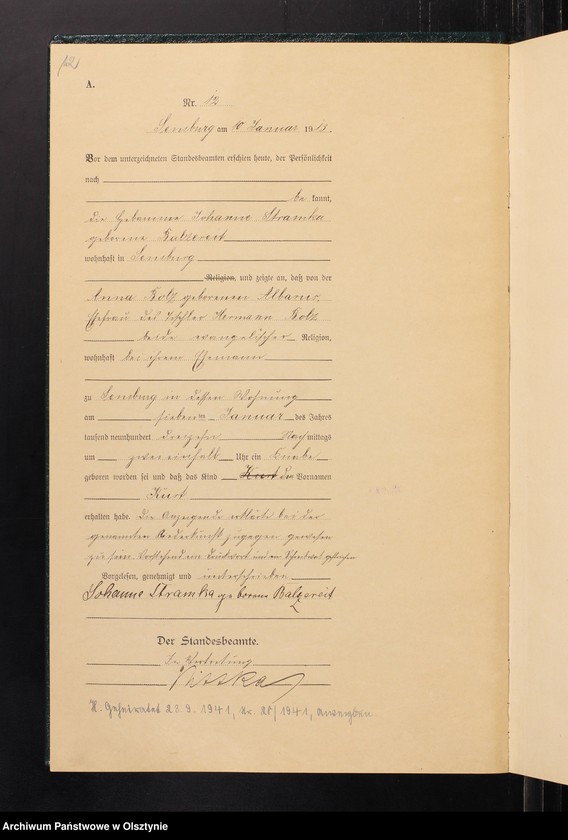 12
A.
Nr. 12
Sensburg am 10 Januar 1913.
Vor dem unterzeichneten Standesbeamten erschien heute, der Persönlichkeit
nach
be kannt,
die Hebamme Johanne Stramka
geborene Balzereit
wohnhaft in Sensburg
Religion, und zeigte an, daß von der
Anna Botz geborenen Albarus,
Ehefrau des Tischler Hermann Botz
beide evangelischer Religion,
wohnhaft bei ihrem Ehemann
zu Sensburg in dessen Wohnung
am sieben Januar des Jahres
tausend neunhundert dreizehn Nachmittags
um zweieinhalb Uhr ein Knabe
geboren worden sei und daß das Kind Kurt den Vornamen
Kurt
erhalten habe. Die Anzeigende erklärte bei der
genannten Niederkunft zugegen gewesen
zu sein. Vorstehend ein Druckwort und ein gestrichen
Vorgelesen, genehmigt und unterschrieben
Johanne Stramka geborene Balzereit
Der Standesbeamte.
In Vertretung
K. Geheiratet 23.9.1941, Nr. 25/1941,
Archiwum Państwowe w Olsztynie